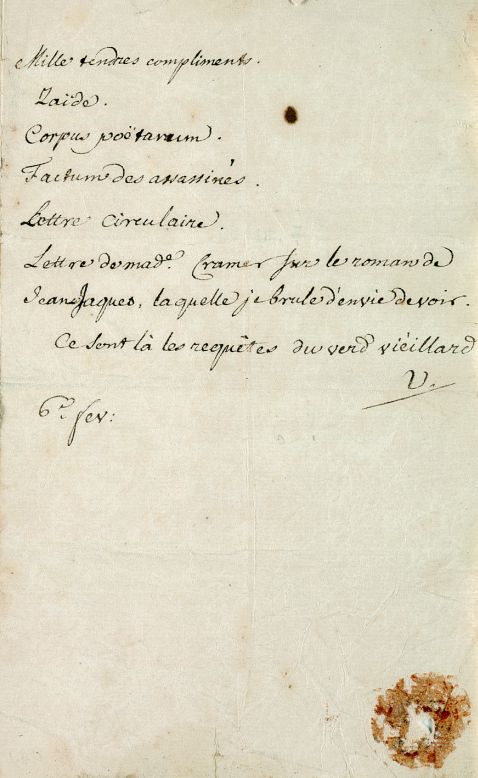 Mille tendres compliments.
Zaïde.
Corpus poëtarum.
Factum des assassinés.
Lettre circulaire.
Lettre de mad.e Cramer sur le roman de
Jean Jaques, laquelle je brule d'envie de voir.
Ce sont là les requêtes du verd viéillard
V.
6.e fev: